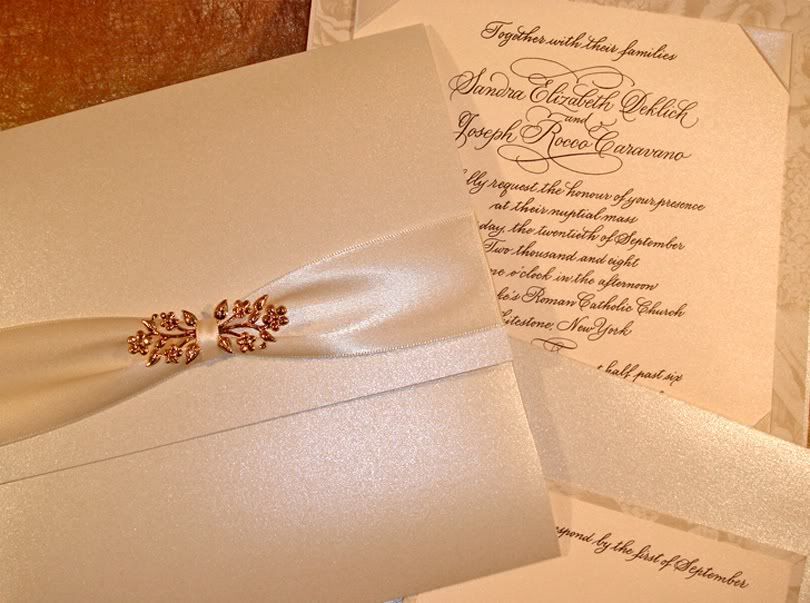 Together with their families
Sandra Elizabeth Deklich
and
Joseph Rocco Caravano
request the honour of your presence
at their nuptial mass
the twentieth of September
Two thousand and eight
o'clock in the afternoon
Roman Catholic Church
New York
half past six
by the first of September